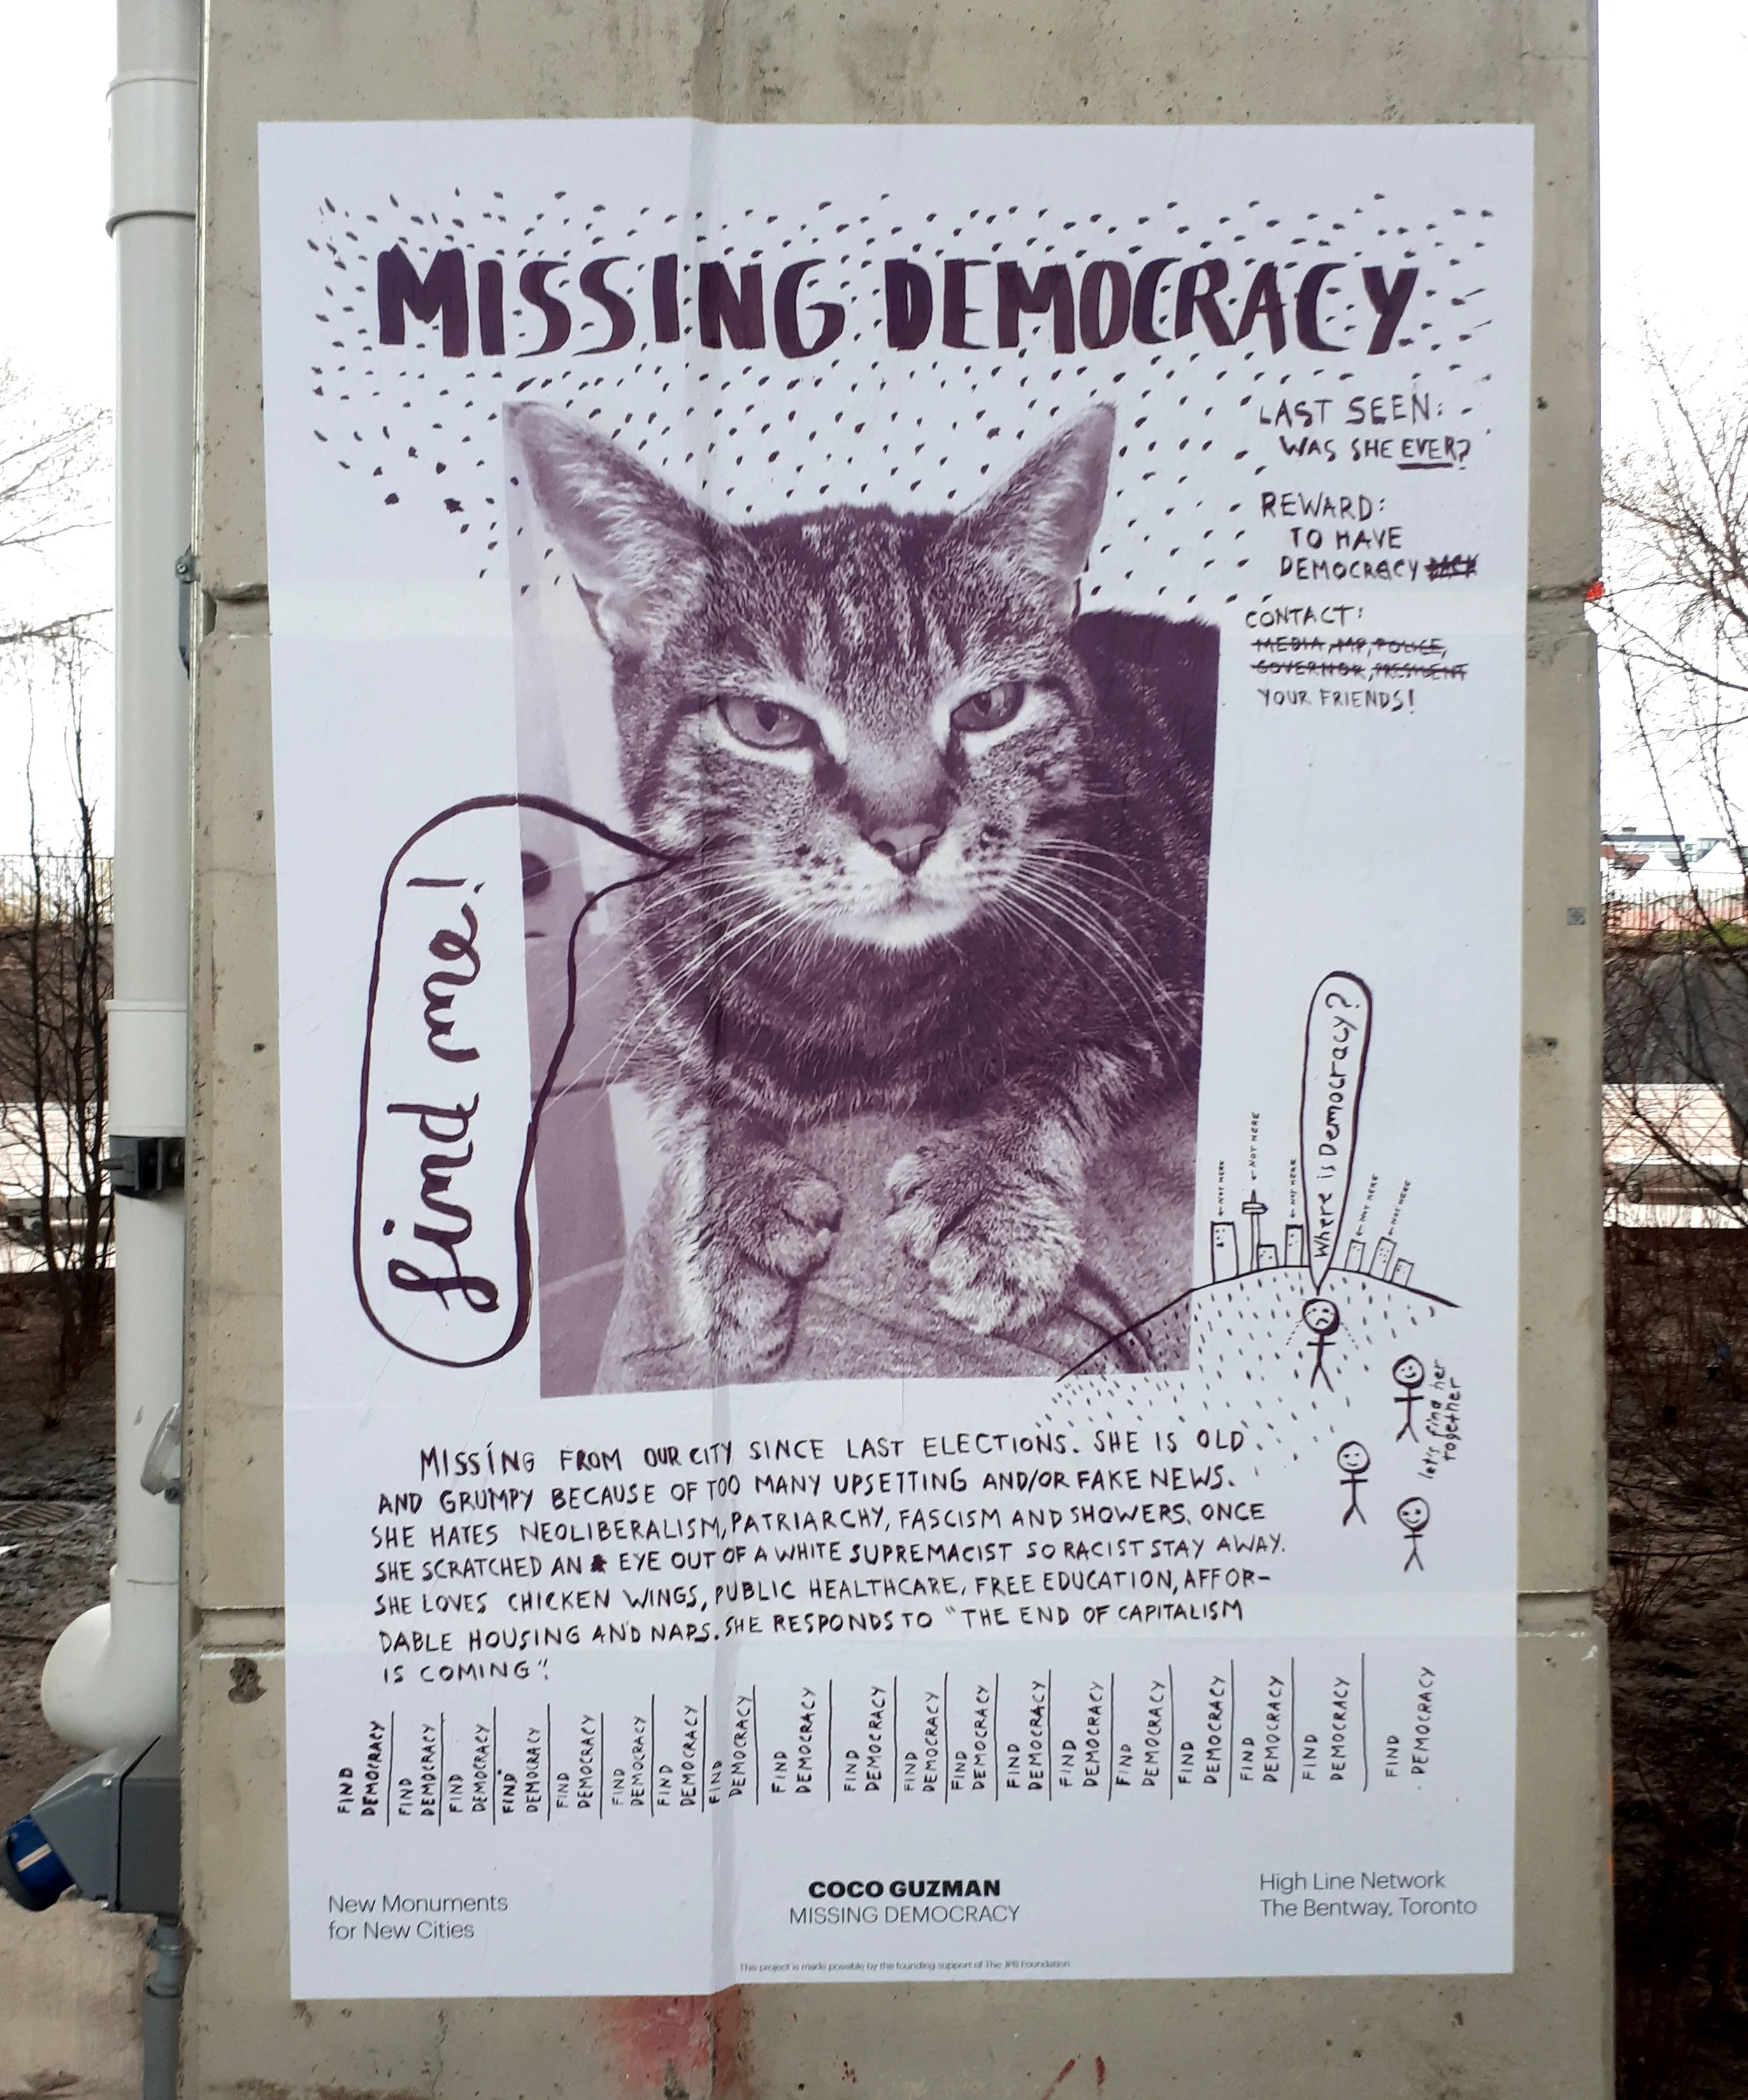 MISSING DEMOCRACY
LAST SEEN:
WAS SHE EVER?
REWARD:
TO HAVE
DEMOCRACY BACK
CONTACT:
MEDIA, MP, POLICE,
GOVERNOR, PRESIDENT
YOUR FRIENDS!
find me!
Where is Democracy?
← NOT HERE
← NOT HERE
← NOT HERE
← NOT HERE
← NOT HERE
let's find her
together
MISSING FROM OUR CITY SINCE LAST ELECTIONS. SHE IS OLD
AND GRUMPY BECAUSE OF TOO MANY UPSETTING AND/OR FAKE NEWS.
SHE HATES NEOLIBERALISM, PATRIARCHY, FASCISM AND SHOWERS. ONCE
SHE SCRATCHED AN EYE OUT OF A WHITE SUPREMACIST SO RACIST STAY AWAY.
SHE LOVES CHICKEN WINGS, PUBLIC HEALTHCARE, FREE EDUCATION, AFFOR-
DABLE HOUSING AND NAPS. SHE RESPONDS TO "THE END OF CAPITALISM
IS COMING".
FIND
DEMOCRACY
FIND
DEMOCRACY
FIND
DEMOCRACY
FIND
DEMOCRACY
FIND
DEMOCRACY
FIND
DEMOCRACY
FIND
DEMOCRACY
FIND
DEMOCRACY
FIND
DEMOCRACY
FIND
DEMOCRACY
FIND
DEMOCRACY
FIND
DEMOCRACY
FIND
DEMOCRACY
FIND
DEMOCRACY
FIND
DEMOCRACY
FIND
DEMOCRACY
FIND
DEMOCRACY
FIND
DEMOCRACY
FIND
DEMOCRACY
New Monuments
for New Cities
COCO GUZMAN
MISSING DEMOCRACY
High Line Network
The Bentway, Toronto
This project is made possible by the founding support of The JPB Foundation